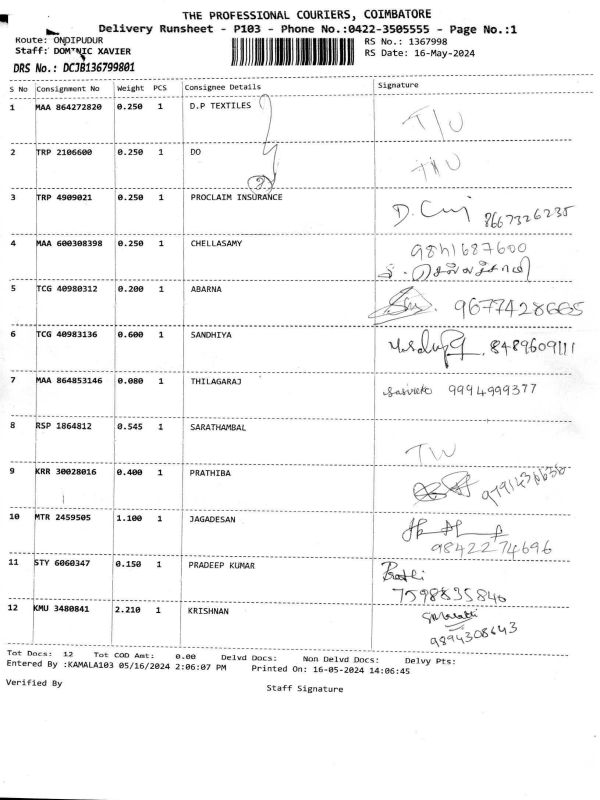 THE PROFESSIONAL COURIERS, COIMBATORE
Delivery Runsheet - P103 - Phone No.:0422-3505555 - Page No.:1
Route: ONDIPUDUR RS No.: 1367998
Staff: DOMINIC XAVIER RS Date: 16-May-2024
DRS No.: DCJB136799801
S No Consignment No Weight PCS Consignee Details Signature
1 MAA 864272820 0.250 1 D.P TEXTILES
2 TRP 2106600 0.250 1 DO
2
3 TRP 4909021 0.250 1 PROCLAIM INSURANCE 8667326235
4 MAA 600308398 0.250 1 CHELLASAMY 9841687600
5 TCG 40980312 0.200 1 ABARNA 9677428665
6 TCG 40983136 0.600 1 SANDHIYA 8489609111
7 MAA 864853146 0.080 1 THILAGARAJ 9994999377
8 RSP 1864812 0.545 1 SARATHAMBAL
9 KRR 30028016 0.400 1 PRATHIBA
10 MTR 2459505 1.100 1 JAGADESAN
9842274696
11 STY 6060347 0.150 1 PRADEEP KUMAR
7598835840
12 KMU 3480841 2.210 1 KRISHNAN
9894308643
Tot Docs: 12 Tot COD Amt: 0.00 Delvd Docs: Non Delvd Docs: Delvy Pts:
Entered By :KAMALA103 05/16/2024 2:06:07 PM Printed On: 16-05-2024 14:06:45
Verified By
Staff Signature